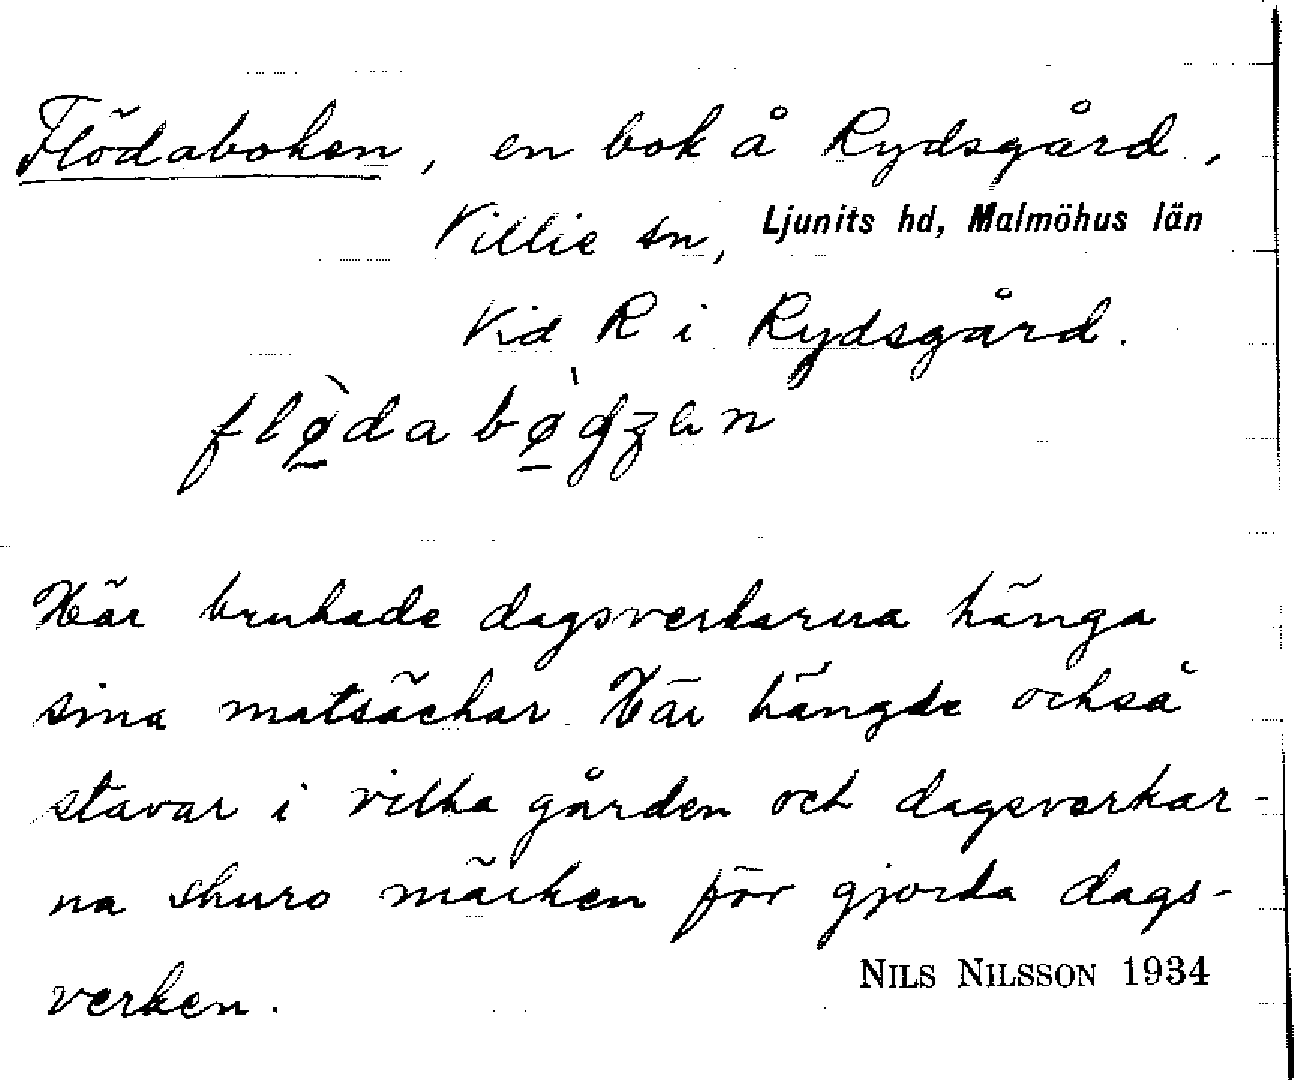 Flödaboken, en bok å Rydsgård,
Villie sn, Ljunits hd, Malmöhus län
Vid R i Rydsgård.
Här brukade dagsverkarna hänga
sina matsäckar. Här hängde också
stavar i vilka gården och dagsverkar-
na skuro märken för gjorda dags-
verken.
NILS NILSSON 1934